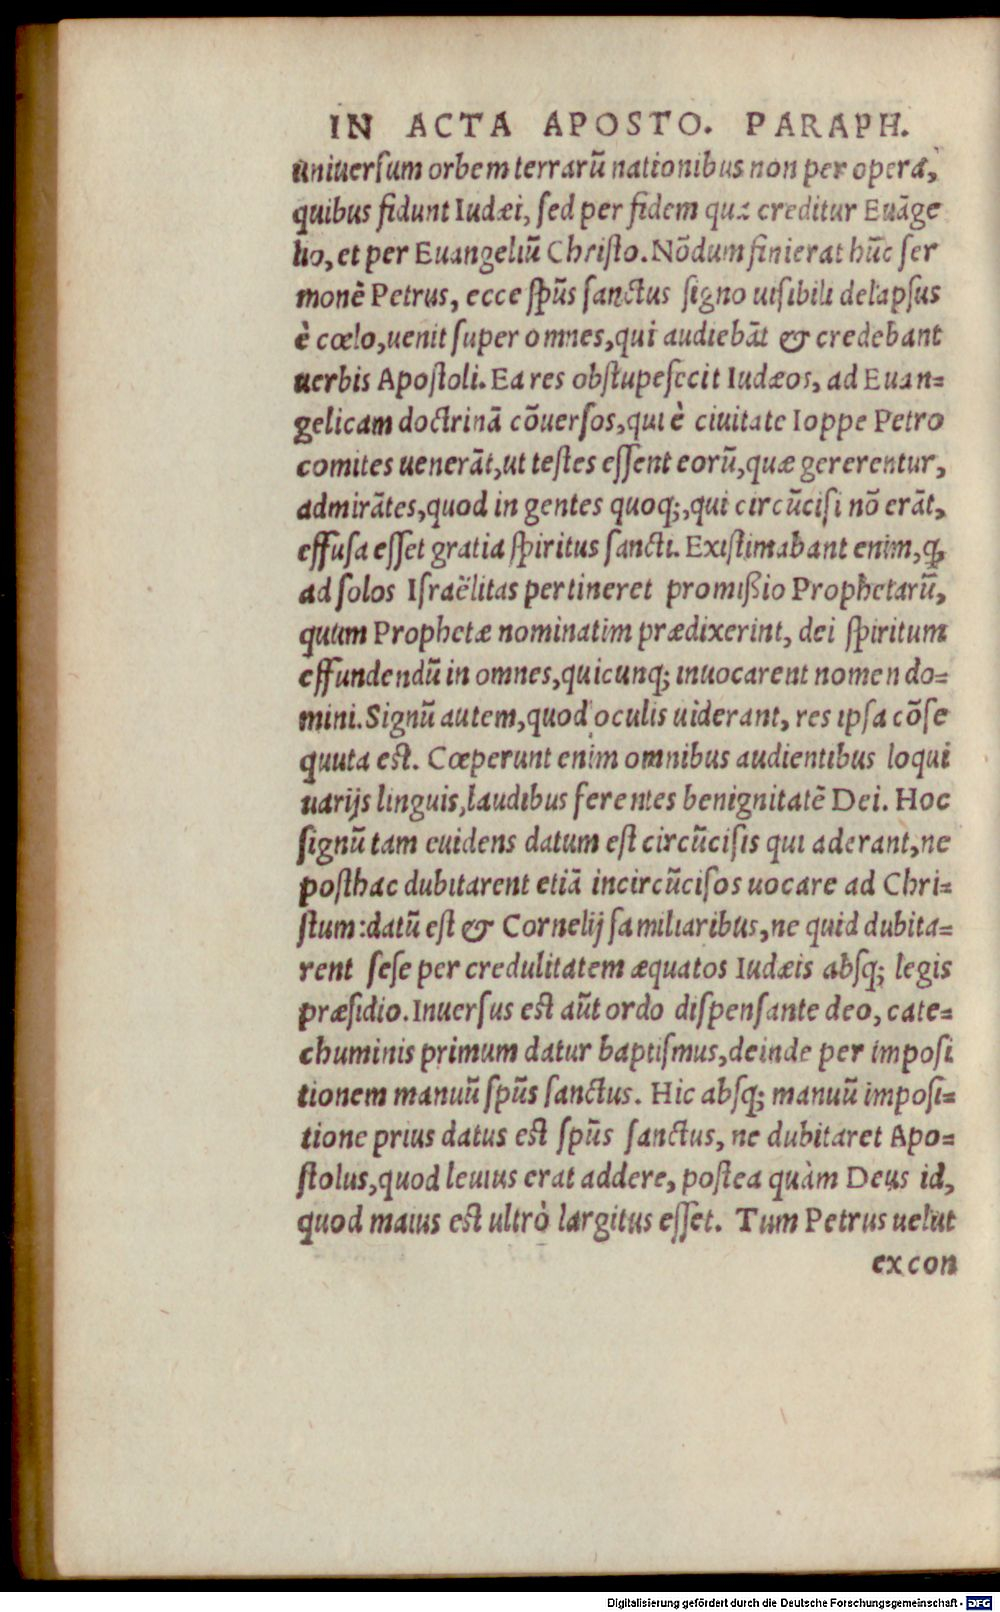 IN ACTA APOSTO. PARAPH.
uniuersum orbem terrarū nationibus non per opera,
quibus fidunt Iudæi, sed per fidem qua creditur Euāge
lio, et per Euangeliū Christo. Nōdum finierat hūc ser
monē Petrus, ecce spūs sanctus signo uisibili delapsus
è cœlo, uenit super omnes, qui audiebāt & credebant
uerbis Apostoli. Ea res obstupefecit Iudæos, ad Euan=
gelicam doctrinā cōuersos, qui è ciuitate Ioppe Petro
comites uenerāt, ut testes essent eorū, quæ gererentur,
admirātes, quod in gentes quoq;, qui circūcisi nō erāt,
effusa esset gratia spiritus sancti. Existimabant enim, ꝙ
ad solos Israëlitas pertineret promißio Prophetarū,
quum Prophetæ nominatim prædixerint, dei spiritum
effundendū in omnes, quicunq; inuocarent nomen do=
mini. Signū autem, quod oculis uiderant, res ipsa cōse
quuta est. Cœperunt enim omnibus audientibus loqui
uarijs linguis, laudibus ferentes benignitatē Dei. Hoc
signū tam euidens datum est circūcisis qui aderant, ne
posthac dubitarent etiā incircūcisos uocare ad Chri=
stum: datū est & Cornelij familiaribus, ne quid dubita=
rent sese per credulitatem æquatos Iudæis absq; legis
præsidio. Inuersus est aūt ordo dispensante deo, cate=
chuminis primum datur baptismus, deinde per imposi
tionem manuū spūs sanctus. Hic absq; manuū imposi=
tione prius datus est spūs sanctus, ne dubitaret Apo=
stolus, quod leuius erat addere, postea quàm Deus id,
quod maius est ultrò largitus esset. Tum Petrus uelut
ex con
Digitalisierung gefördert durch die Deutsche Forschungsgemeinschaft - DFG